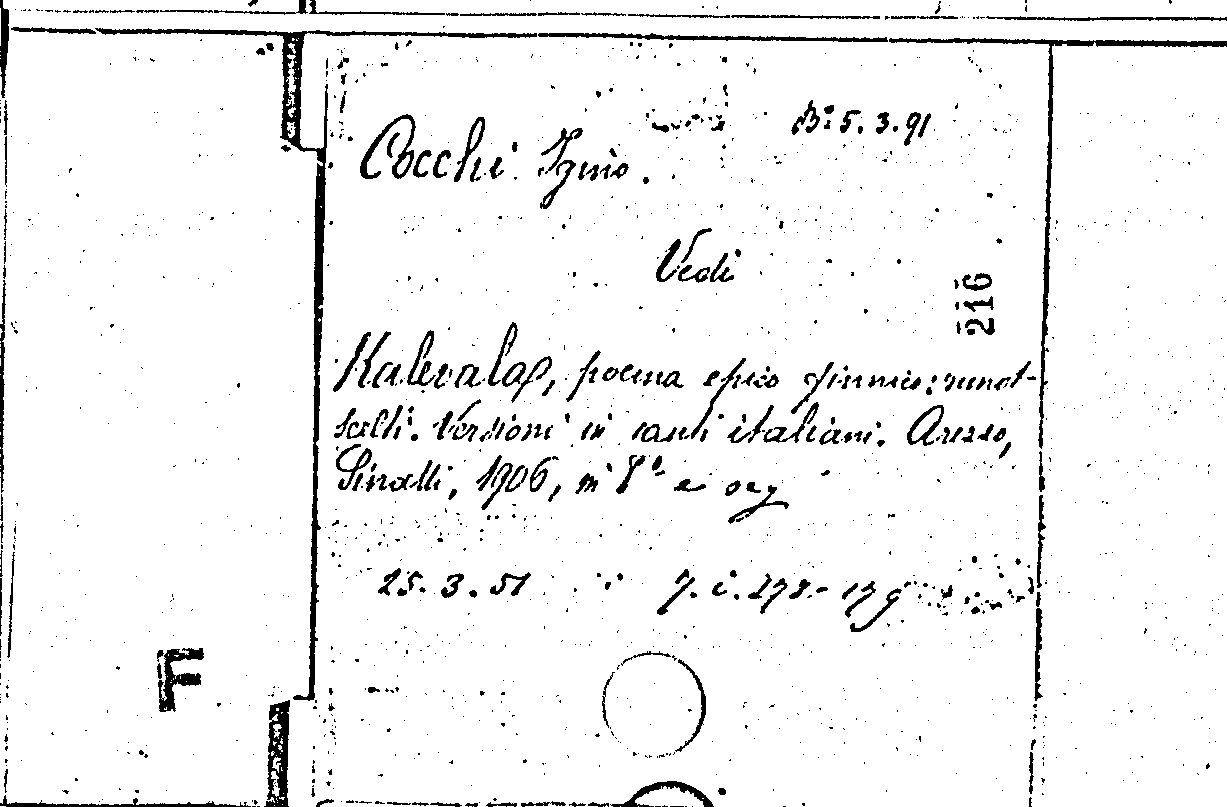 B: 5. 3. 91
Cocchi Igino.
Vedi
216
Kalevala, poema epico finnico: runot
scelti. Versioni in canti italiani. Arezzo,
Sinatti, 1906, in 8°
25. 3. 51
F